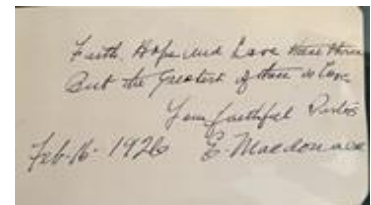 Faith, Hope and Love these three
But the Greatest of these is Love
Your faithful Pastor
Feb-16-1926 E. Macdonald